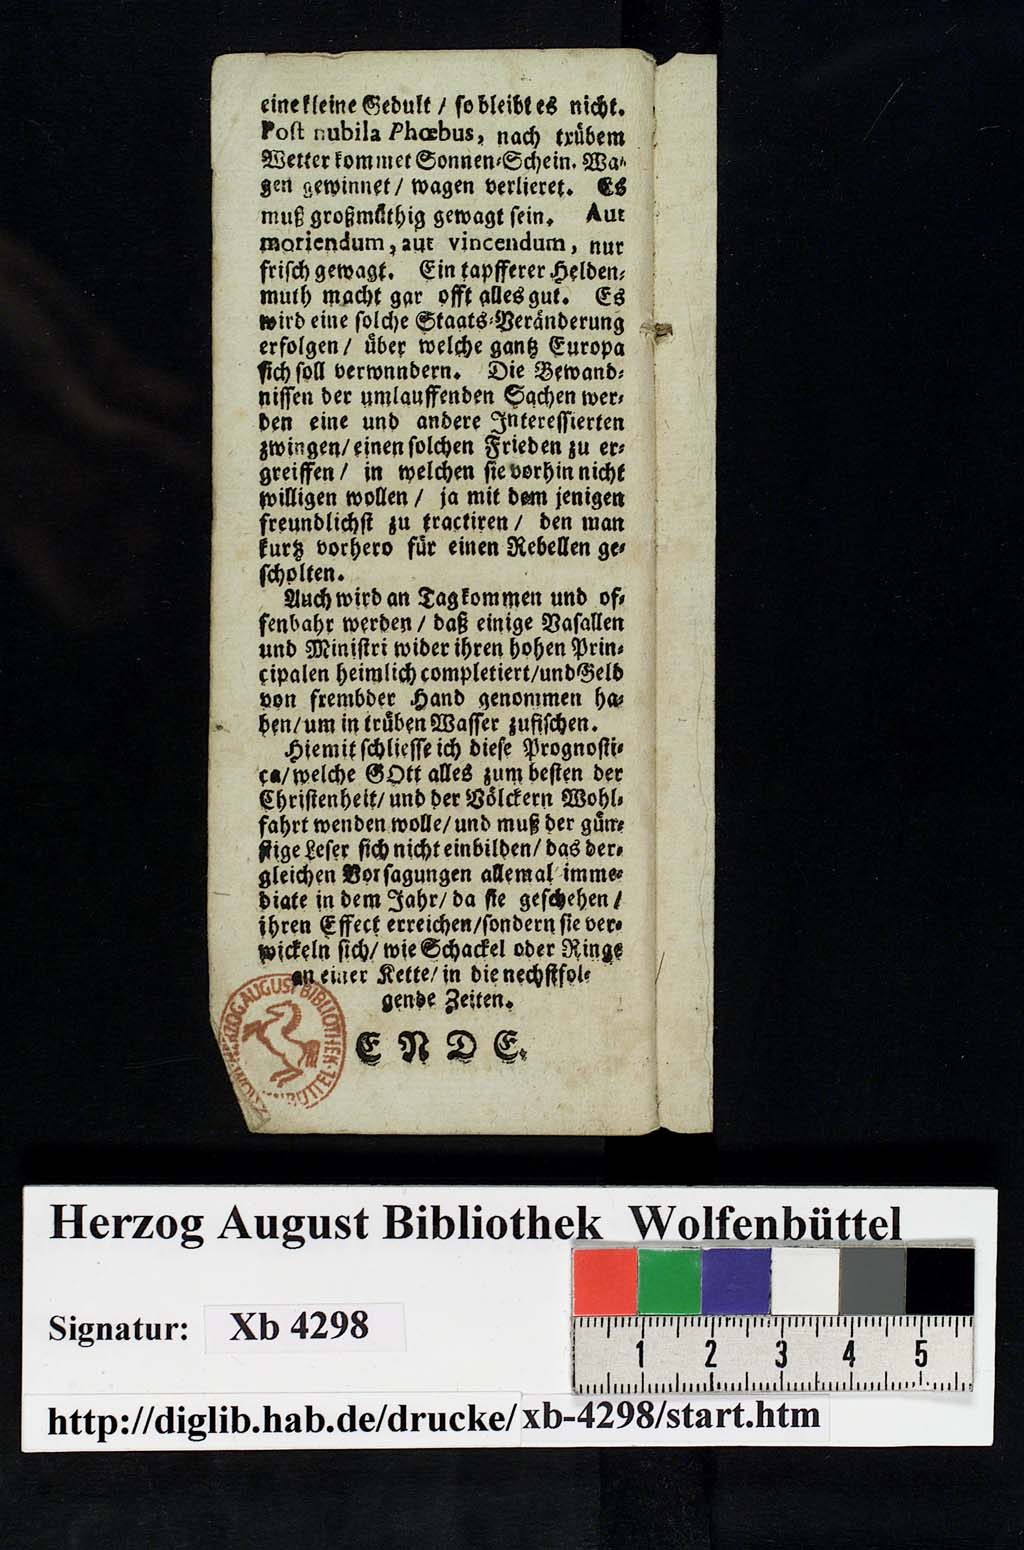 eine kleine Gedult / so bleibt es nicht.
Post nubila Phœbus, nach trübem
Wetter kommet Sonnen-Schein. Wa-
gen gewinnet / wagen verlieret. Es
muß großmůthig gewagt sein. Aut
moriendum, aut vincendum, nur
frisch gewagt. Ein tapfferer Helden-
muth macht gar offt alles gut. Es
wird eine solche Staats-Veränderung
erfolgen / über welche gantz Europa
sich soll verwnndern. Die Bewand-
nissen der umlauffenden Sachen wer-
den eine und andere Interessierten
zwingen / einen solchen Frieden zu er-
greiffen / in welchen sie vorhin nicht
willigen wollen / ja mit dem jenigen
freundlichst zu tractiren / den man
kurtz vorhero für einen Rebellen ge-
scholten.
Auch wird an Tag kommen und of-
fenbahr werden / daß einige Vasallen
und Ministri wider ihren hohen Prin-
cipalen heimlich completiert / und Geld
von frembder Hand genommen ha-
ben / um in trüben Wasser zufischen.
Hiemit schliesse ich diese Prognosti-
ca / welche GOtt alles zum besten der
Christenheit / und der Völckern Wohl-
fahrt wenden wolle / und muß der gün-
stige Leser sich nicht einbilden / das der-
gleichen Vorsagungen allemal imme-
diate in dem Jahr / da sie geschehen /
ihren Effect erreichen / sondern sie ver-
wickeln sich / wie Schackel oder Ringe
an einer Kette / in die nechstfol-
gende Zeiten.
ENDE.
HERZOG AUGUST BIBLIOTHEK
Herzog August Bibliothek Wolfenbüttel
Signatur: Xb 4298
1 2 3 4 5
http://diglib.hab.de/drucke/xb-4298/start.htm